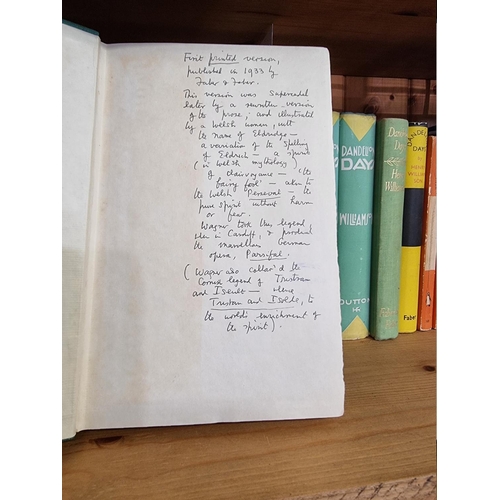 First printed version,
published in 1933 by
Faber & Faber.
This version was superceded
later by a rewritten version
of the prose; and illustrated
by a Welsh woman, with
the name of Eldridge —
a variation of the spelling
of Eldrich — a spirit
(in Welsh mythology)
of clairvoyance — 'the
fairy fool' — akin to
the Welsh Perceval — the
pure spirit without harm
or fear.
Wagner took this legend
when in Cardiff, & produced
the marvellous German
opera, Parsifal.
(Wagner also collar'd the
Cornish legend of Tristram
and Iseult — hence
Tristan and Isolde, to
the world's enrichment of
the spirit).
DANDELION
DAYS
WILLIAMSON
DUTTON
DANDELION
DAYS
Henry
Williamson
DANDELION
DAYS
HENRY
Faber